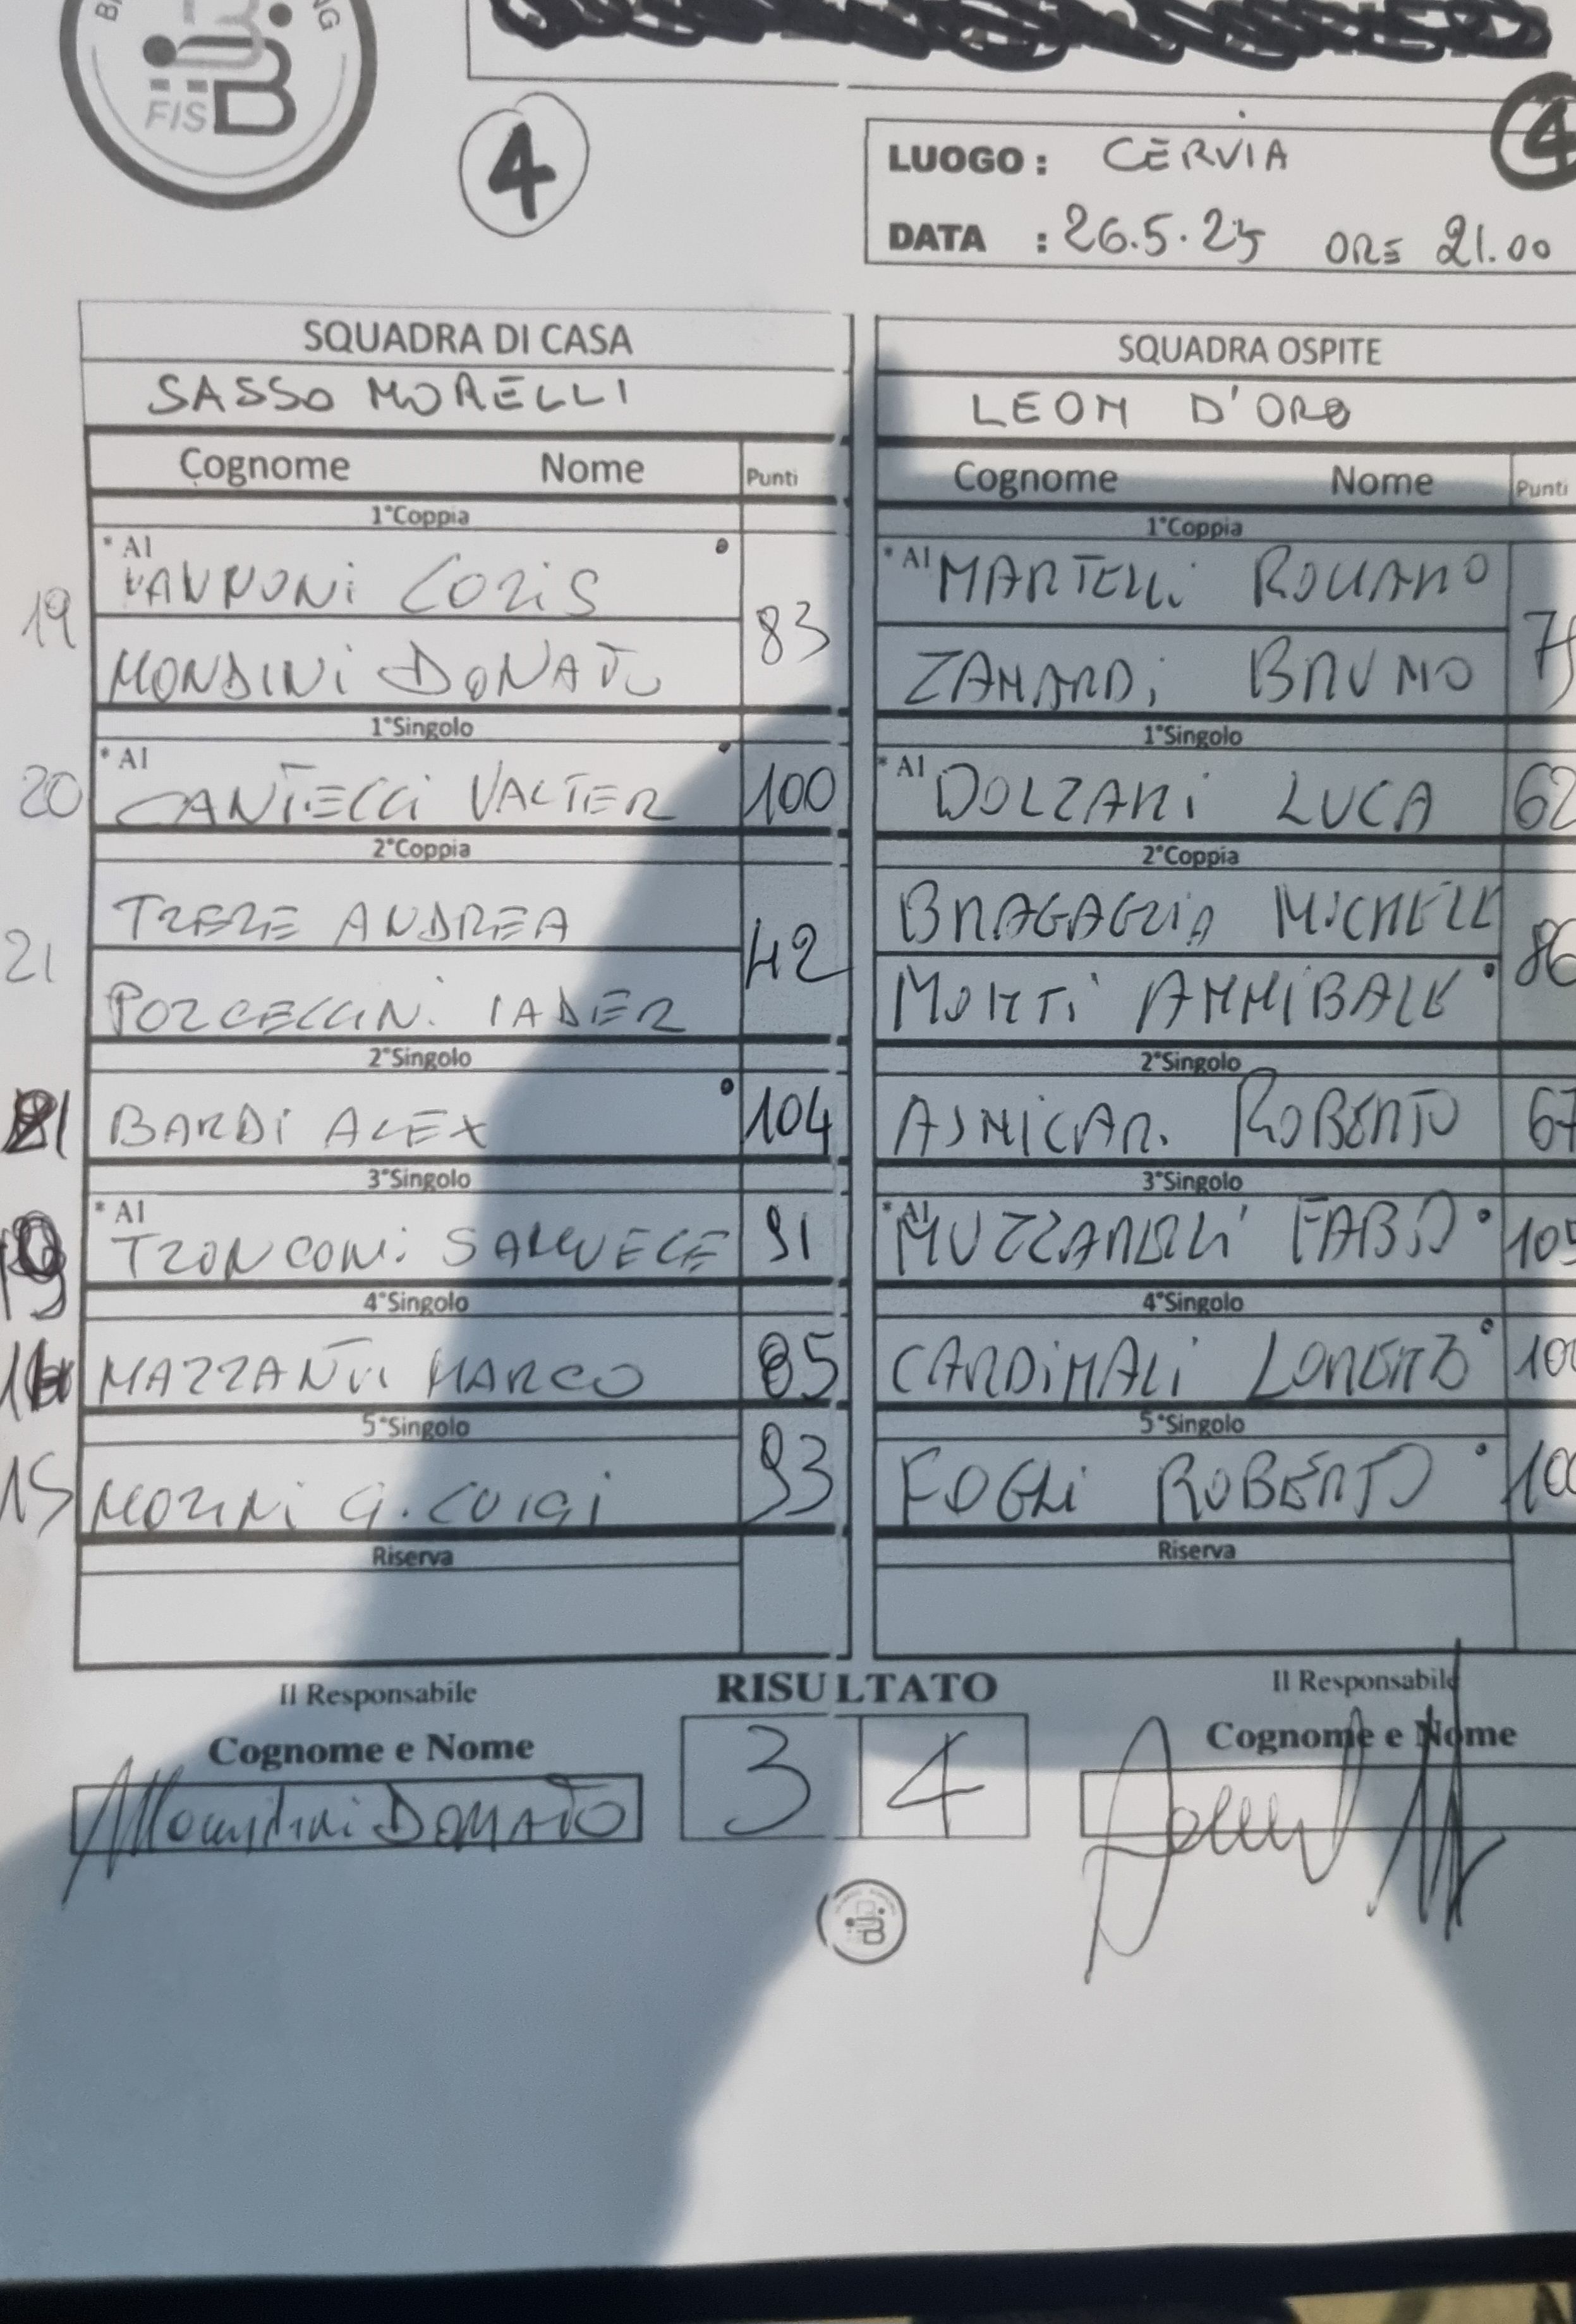 FIS
4
LUOGO : CERVIA
4
DATA : 26.5.25 ORE 21.00
SQUADRA DI CASA
SASSO MORELLI
Cognome Nome Punti
1°Coppia
* A1
19 VANNONI LORIS
83
MONDINI DONATO
1°Singolo
* A1
20 CANTELLI VALTER 100
2°Coppia
TRERE ANDREA
21 42
PORCELLINI IADER
2°Singolo
BARDI ALEX 104
3°Singolo
* A1
TRONCONI SAMUELE 91
4°Singolo
MAZZANTI MARCO 85
5°Singolo
15 MORINI G. LUIGI 93
Riserva
SQUADRA OSPITE
LEON D'ORO
Cognome Nome Punti
1°Coppia
* A1 MARTELLI ROMANO
ZANARDI BRUNO
1°Singolo
* A1 DOLZANI LUCA 62
2°Coppia
BRAGAGLIA MICHELE
86
MONTI ANNIBALE
2°Singolo
ROBERTO 67
3°Singolo
* A1
MUZZARELLI FABIO 105
4°Singolo
CARDINALI LORENZO 100
5°Singolo
FOGLI ROBERTO 100
Riserva
Il Responsabile
Cognome e Nome
Mondini DONATO
RISULTATO
3 4
Il Responsabile
Cognome e Nome